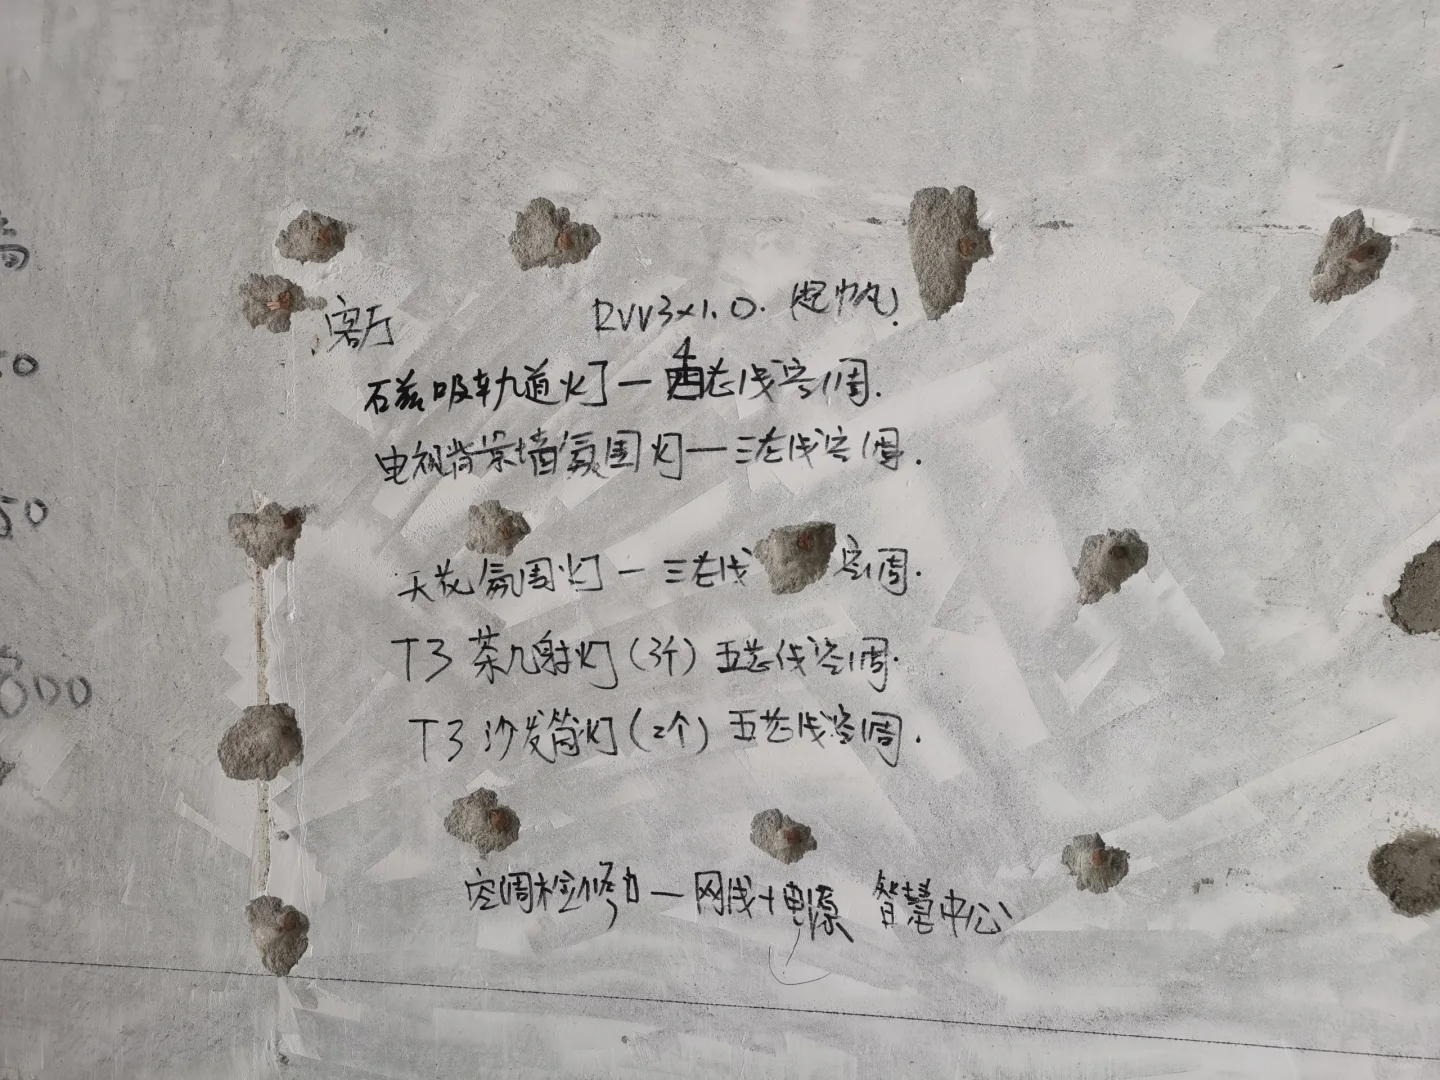 客厅 RVV3×1.0.
石兹吸轨道灯一4芯线空调.
电视背景墙氛围灯一三芯线空调.
天花氛围灯一三芯线 空调.
T3 茶几射灯(3个)五芯线空调.
T3 沙发筒灯(2个)五芯线空调.
空调检修口一网线+电源 智慧中心
高
50
50
800